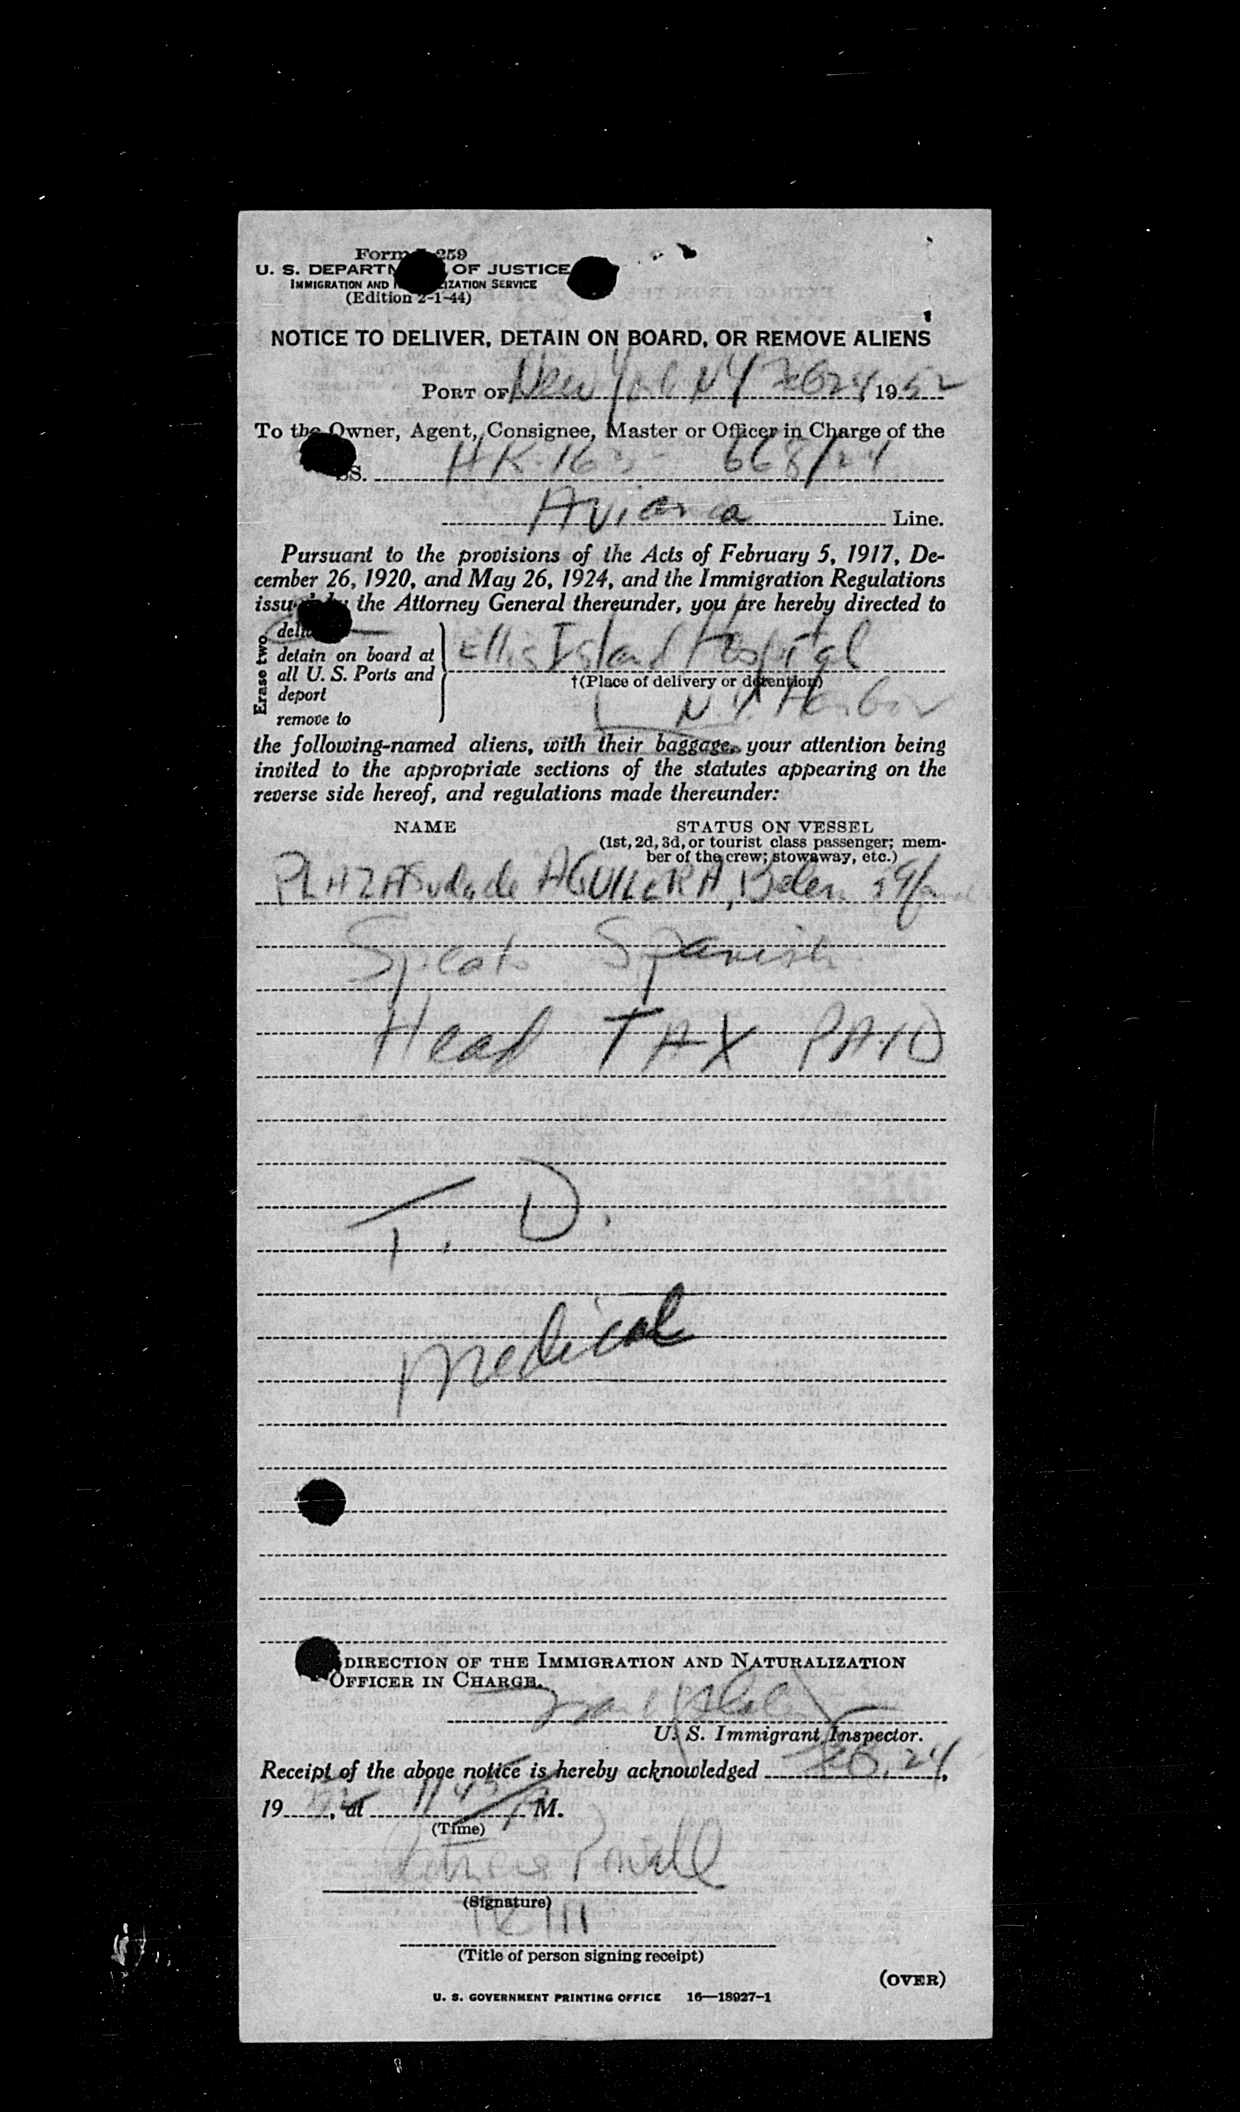 Form 259
U. S. DEPARTM OF JUSTICE
IMMIGRATION AND IZATION SERVICE
(Edition 2-1-44)
NOTICE TO DELIVER, DETAIN ON BOARD, OR REMOVE ALIENS
PORT OF New York NY Feb 24, 1952
To the Owner, Agent, Consignee, Master or Officer in Charge of the
SS. HK-163 668/24
Avianca Line.
Pursuant to the provisions of the Acts of February 5, 1917, De-
cember 26, 1920, and May 26, 1924, and the Immigration Regulations
issued by the Attorney General thereunder, you are hereby directed to
Erase two
detain on board at
all U. S. Ports and
deport
remove to
Ellis Island Hospital
†(Place of delivery or detention)
N.Y. Harbor
the following-named aliens, with their baggage, your attention being
invited to the appropriate sections of the statutes appearing on the
reverse side hereof, and regulations made thereunder:
NAME STATUS ON VESSEL
(1st, 2d, 3d, or tourist class passenger; mem-
ber of the crew; stowaway, etc.)
PLAZAS vda de AGUILERA, Belen
Speaks Spanish
Head TAX PAID
T. D.
medical
DIRECTION OF THE IMMIGRATION AND NATURALIZATION
OFFICER IN CHARGE.
U. S. Immigrant Inspector.
Receipt of the above notice is hereby acknowledged Feb. 24,
19 52, at 1145 M.
(Time)
Powell
(Signature)
(Title of person signing receipt)
(OVER)
U. S. GOVERNMENT PRINTING OFFICE 16—18927-1